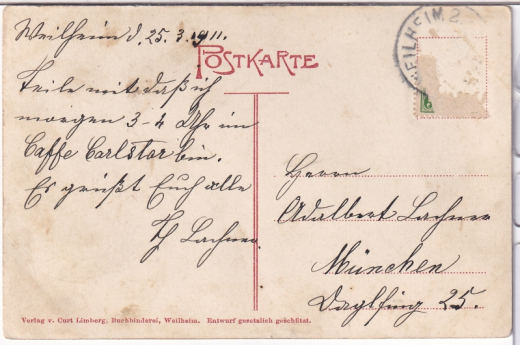 Weilheim d. 25.3.1911.
POSTKARTE
WEILHEIM 2
Teile mit daß ich
morgen 3-4 Uhr im
Caffe Carlstor bin.
Es grüßt Euch alle
Th Lachner.
Herrn
Adalbert Lachner
München
Daglfing 25.
Verlag v. Curt Limberg, Buchbinderei, Weilheim. Entwurf gesetzlich geschützt.